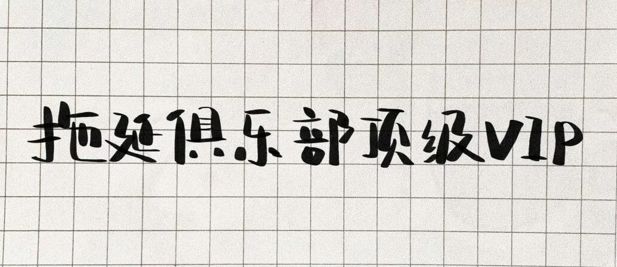 拖延俱乐部顶级VIP